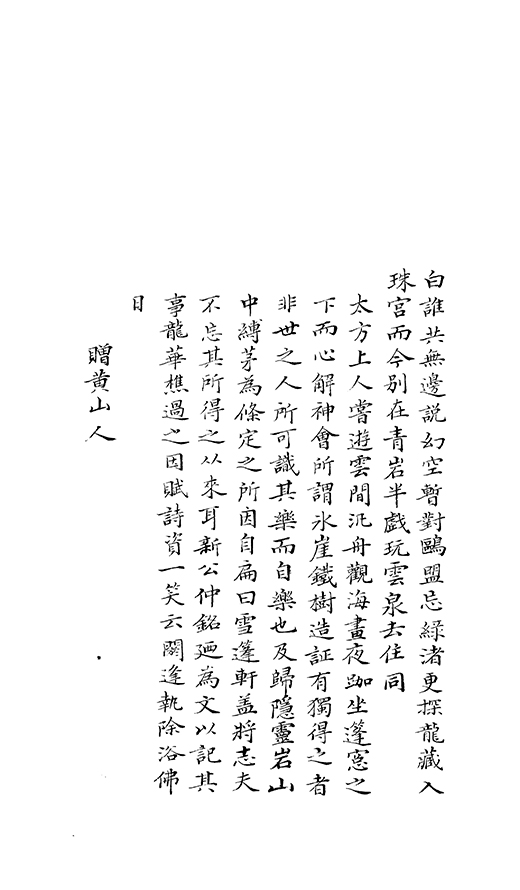 白誰共無邊説幻空暫對鷗盟忘緑渚更探龍藏入
珠宮而今别在青岩半戲玩雲泉去住同
太方上人嘗遊雲間汎舟觀海晝夜跏坐篷窓之
下而心解神會所謂氷崖鐵樹造証有獨得之者
非世之人所可識其樂而自樂也及歸隱靈岩山
中縛茅為條定之所因自扁曰雪篷軒盖將志夫
不忘其所得之从來耳新公仲銘廼為文以記其
事龍華樵過之因賦詩資一笑云閼逢執除浴佛
日
贈黄山人